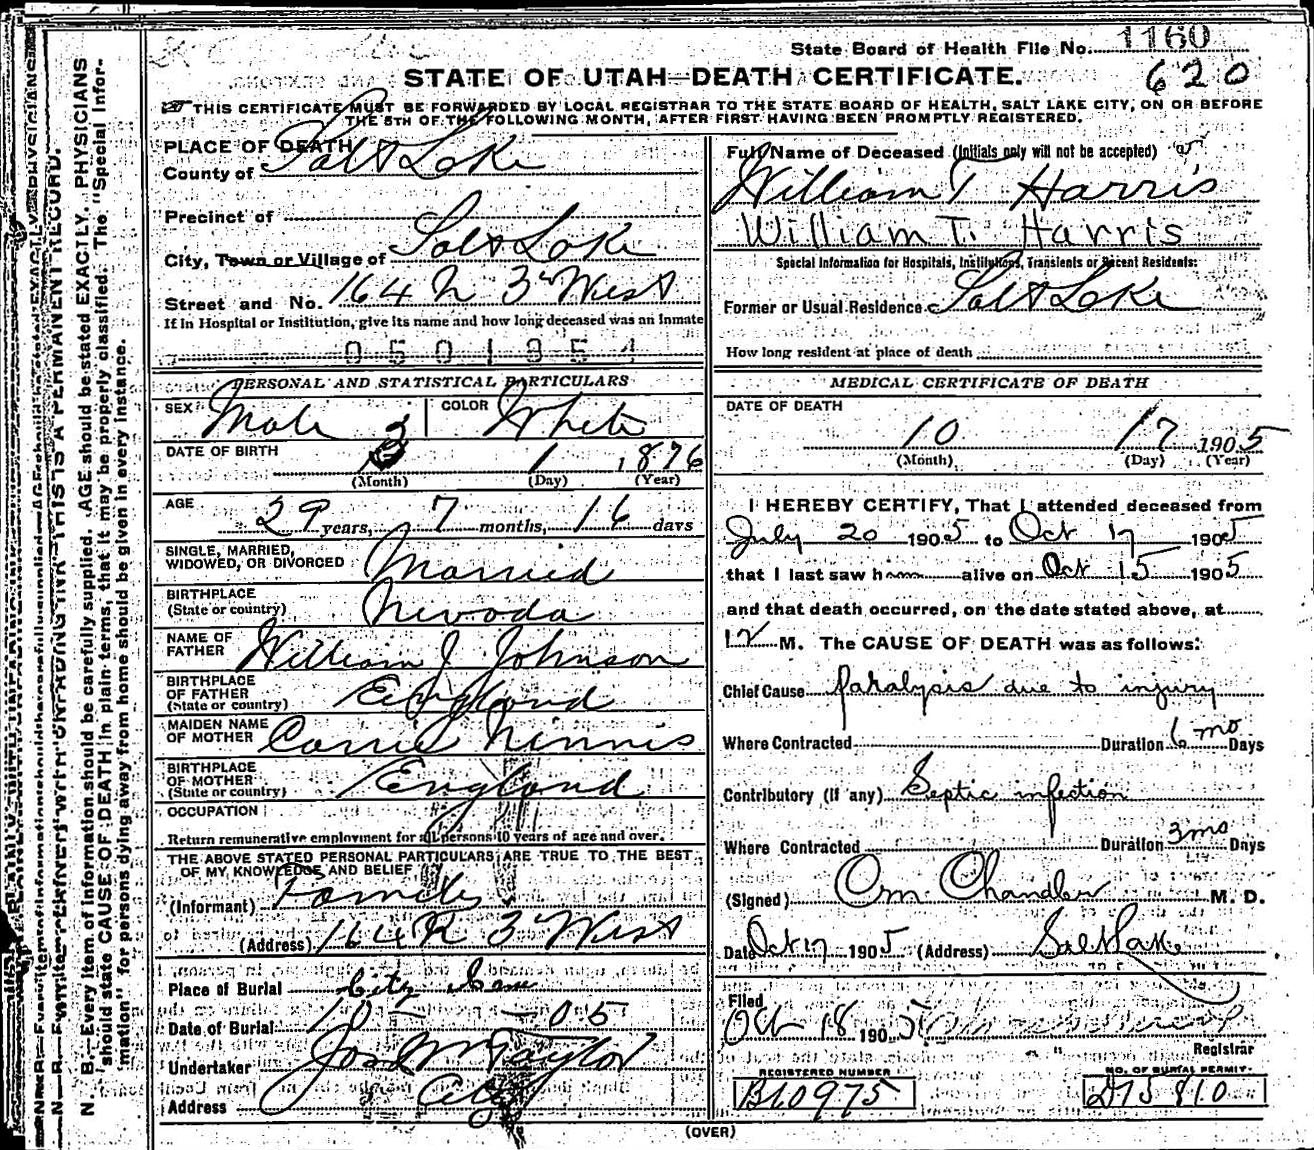 State Board of Health File No. 1160
620
STATE OF UTAH—DEATH CERTIFICATE.
THIS CERTIFICATE MUST BE FORWARDED BY LOCAL REGISTRAR TO THE STATE BOARD OF HEALTH, SALT LAKE CITY, ON OR BEFORE
THE 5TH OF THE FOLLOWING MONTH, AFTER FIRST HAVING BEEN PROMPTLY REGISTERED.
PLACE OF DEATH
County of Salt Lake
Precinct of
City, Town or Village of Salt Lake
Street and No. 164 N 3d West
If in Hospital or Institution, give its name and how long deceased was an inmate
0501354
PERSONAL AND STATISTICAL PARTICULARS
SEX Male
COLOR White
DATE OF BIRTH 3 1 1876
(Month) (Day) (Year)
AGE 29 years, 7 months, 16 days
SINGLE, MARRIED,
WIDOWED, OR DIVORCED Married
BIRTHPLACE
(State or country) Nevada
NAME OF
FATHER William J Johnson
BIRTHPLACE
OF FATHER
(State or country) England
MAIDEN NAME
OF MOTHER Carrie Ninnis
BIRTHPLACE
OF MOTHER
(State or country) England
OCCUPATION
Return remunerative employment for all persons 10 years of age and over.
THE ABOVE STATED PERSONAL PARTICULARS ARE TRUE TO THE BEST
OF MY KNOWLEDGE AND BELIEF
(Informant) Family
(Address) 164 N 3d West
Place of Burial City Cem
Date of Burial 10 — — 05
Undertaker Jos Wm Taylor
Address City
Full Name of Deceased (Initials only will not be accepted)
William T Harris
William T. Harris
Special Information for Hospitals, Institutions, Transients or Recent Residents:
Former or Usual Residence Salt Lake
How long resident at place of death
MEDICAL CERTIFICATE OF DEATH
DATE OF DEATH
10 17 1905
(Month) (Day) (Year)
I HEREBY CERTIFY, That I attended deceased from
July 20 1905 to Oct 17 1905
that I last saw him alive on Oct 15 1905
and that death occurred, on the date stated above, at
12 M. The CAUSE OF DEATH was as follows:
Chief Cause paralysis due to injury
Where Contracted Duration 6 mo Days
Contributory (if any) Septic infection
Where Contracted Duration 3 mo Days
(Signed) Chandler M. D.
Date Oct 17 1905 (Address) Salt Lake
Filed
Oct 18 1905
Registrar
REGISTERED NUMBER
B10975
NO. OF BURIAL PERMIT
D75810
(OVER)
N. B.—Every item of information should be carefully supplied. AGE should be stated EXACTLY. PHYSICIANS
should state CAUSE OF DEATH in plain terms, that it may be properly classified. The "Special Infor-
mation" for persons dying away from home should be given in every instance.